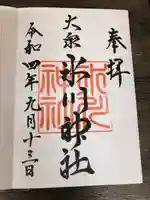 奉拝
大泉
氷川神社
令和四年九月十三日